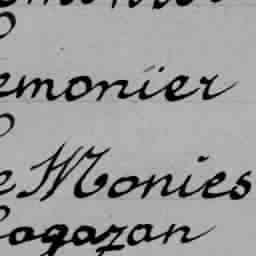 emonier
e Monies
ogazan